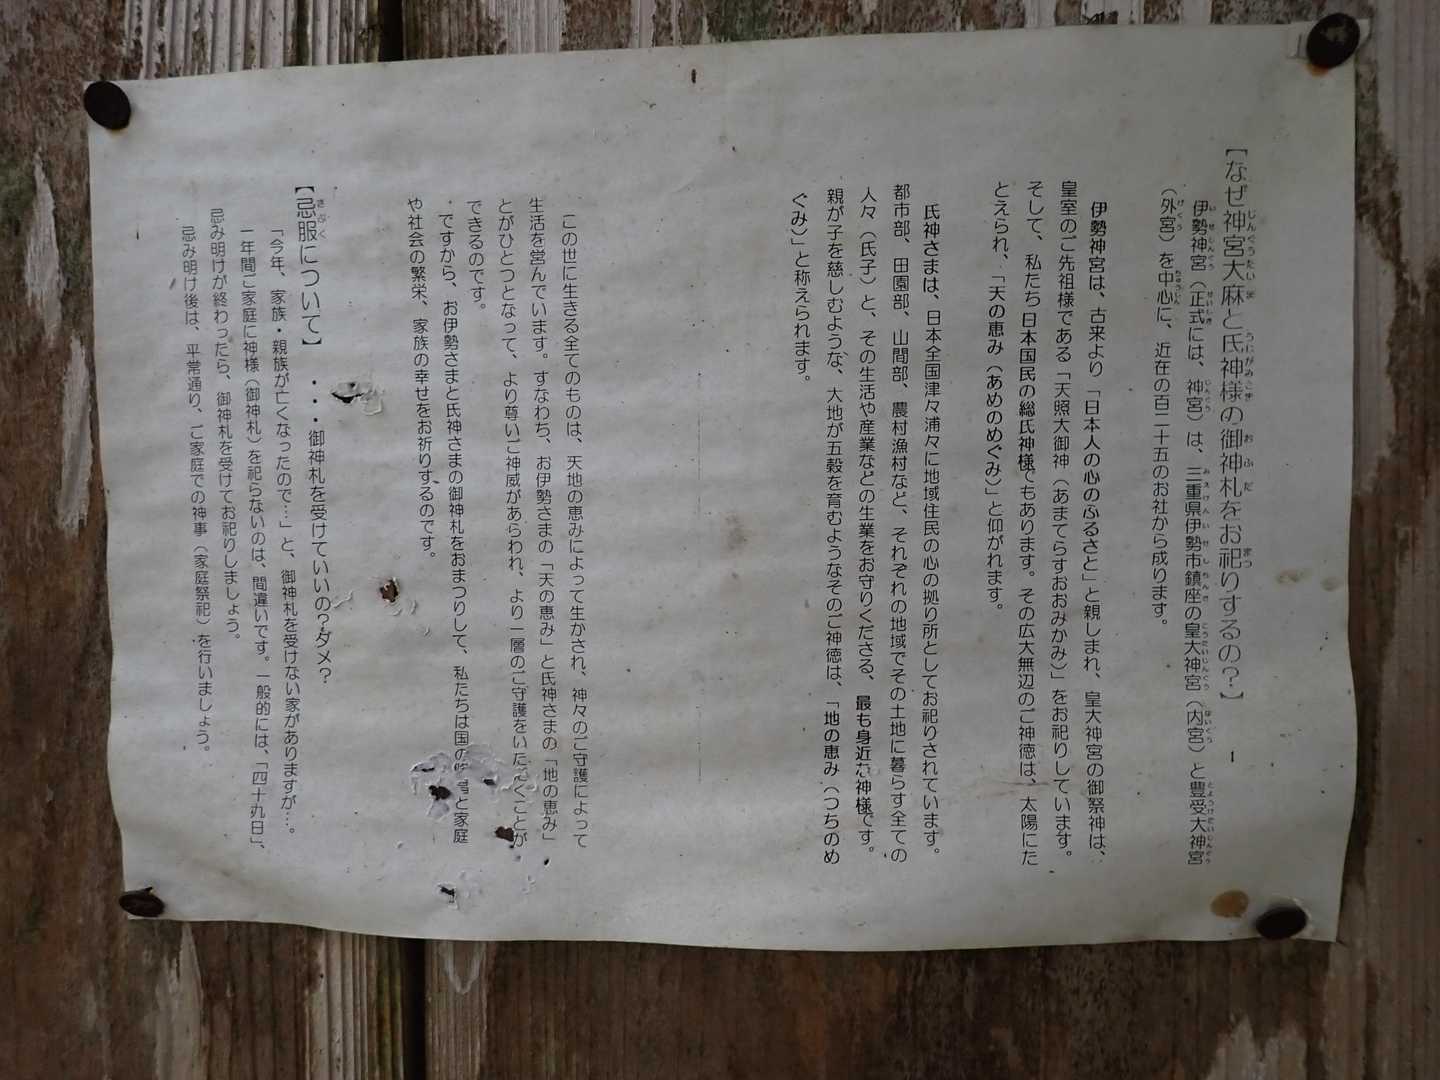 【なぜ神宮大麻と氏神様の御神札をお祀りするの？】
伊勢神宮（正式には、神宮）は、三重県伊勢市鎮座の皇大神宮（内宮）と豊受大神宮
（外宮）を中心に、近在の百二十五のお社から成ります。
伊勢神宮は、古来より「日本人の心のふるさと」と親しまれ、皇大神宮の御祭神は、
皇室のご先祖様である「天照大御神（あまてらすおおみかみ）」をお祀りしています。
そして、私たち日本国民の総氏神様でもあります。その広大無辺のご神徳は、太陽にた
とえられ、「天の恵み（あめのめぐみ）」と仰がれます。
氏神さまは、日本全国津々浦々に地域住民の心の拠り所としてお祀りされています。
都市部、田園部、山間部、農村漁村など、それぞれの地域でその土地に暮らす全ての
人々（氏子）と、その生活や産業などの生業をお守りくださる、最も身近な神様です。
親が子を慈しむような、大地が五穀を育むようなそのご神徳は、「地の恵み（つちのめ
ぐみ）」と称えられます。
この世に生きる全てのものは、天地の恵みによって生かされ、神々のご守護によって
生活を営んでいます。すなわち、お伊勢さまの「天の恵み」と氏神さまの「地の恵み」
とがひとつとなって、より尊いご神威があらわれ、より一層のご守護をいただくことが
できるのです。
ですから、お伊勢さまと氏神さまの御神札をおまつりして、私たちは国の　　と家庭
や社会の繁栄、家族の幸せをお祈りするのです。
【忌服について】・・・御神札を受けていいの？ダメ？
「今年、家族・親族が亡くなったので…」と、御神札を受けない家がありますが…。
一年間ご家庭に神様（御神札）を祀らないのは、間違いです。一般的には、「四十九日」、
忌み明けが終わったら、御神札を受けてお祀りしましょう。
忌み明け後は、平常通り、ご家庭での神事（家庭祭祀）を行いましょう。